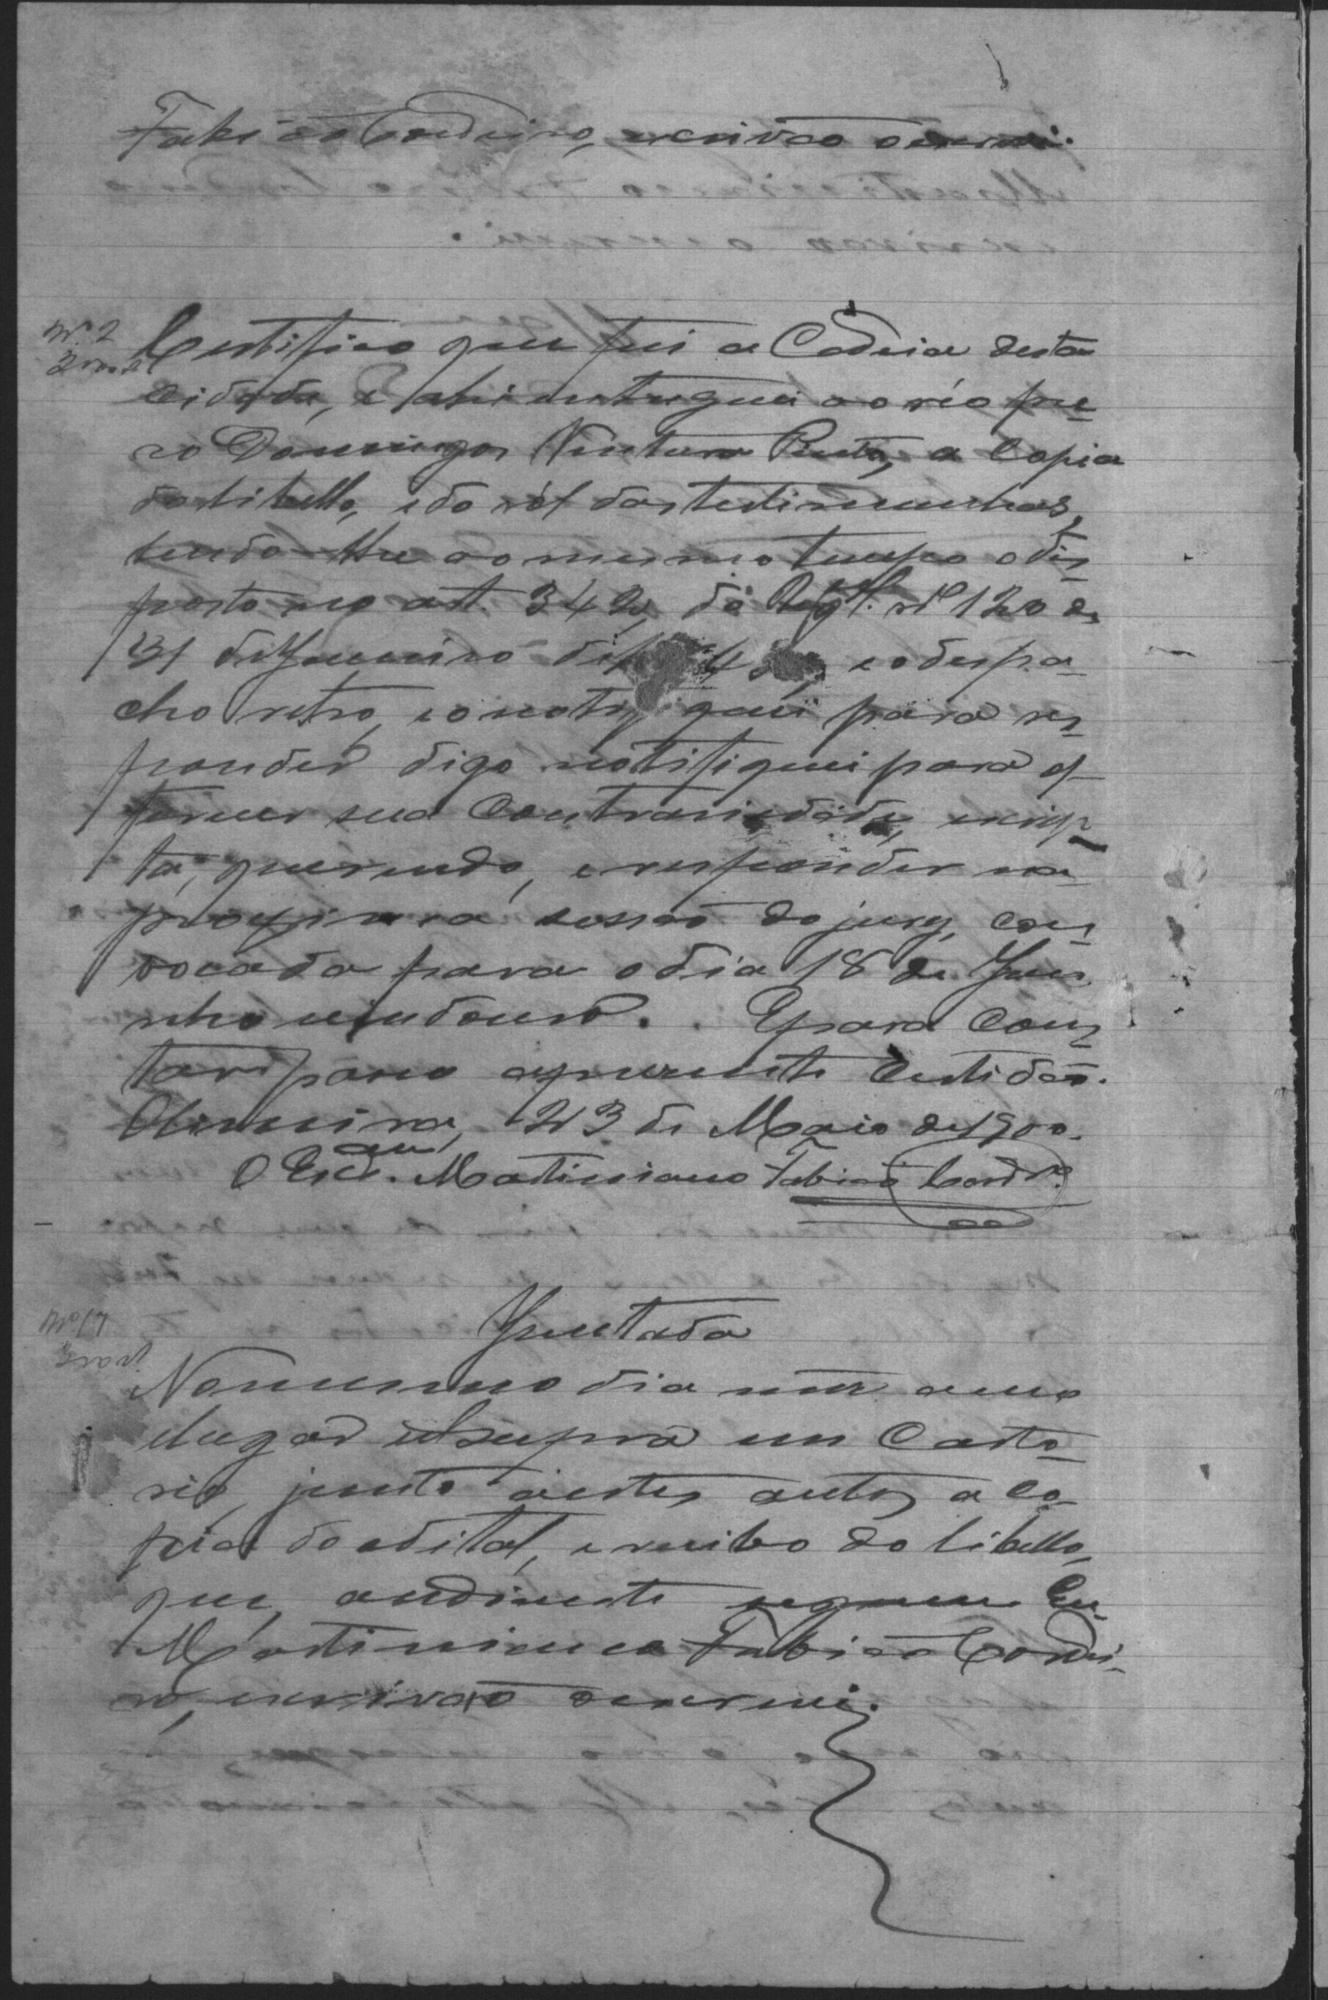 Fabião Cordeiro, escrivão o escrevi.
Nº 2
Certifico que fui a Cadeia desta
cidade, e ahi entreguei ao réo pre-
zo Domingos Ventura Pinto, a copia
do libello, e do ról das testimunhas,
lendo-lhe ao mesmo tempo o dis-
posto no art. 342, do Regl. nº 120 de
31 de Janeiro de 1842, e o despa-
cho retro, e o notifiquei para res-
ponder digo notifiquei para of-
ferecer sua contrariedade, escrip-
ta, querendo, e responder na
proxima sessão do jury, con-
vocada para o dia 18 de Ju-
nho vindouro. E para cons-
tar passo a presente certidão.
23 de Maio de 1900.
O Escam. Martiniano Fabião Cordrº
Juntada
No mesmo dia mez anno
e lugar supra em Carto-
rio, junto a estes autos a co-
pia do edital, e recibo do libello,
que, adiante seguem Eu
Martiniano Fabião Cordei-
ro, escrivão o escrevi.